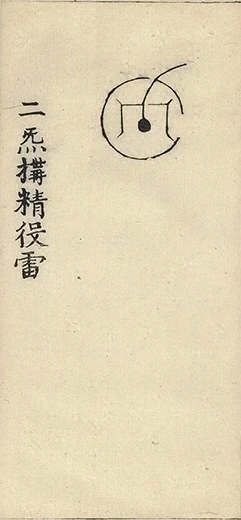 二炁搆精役雷